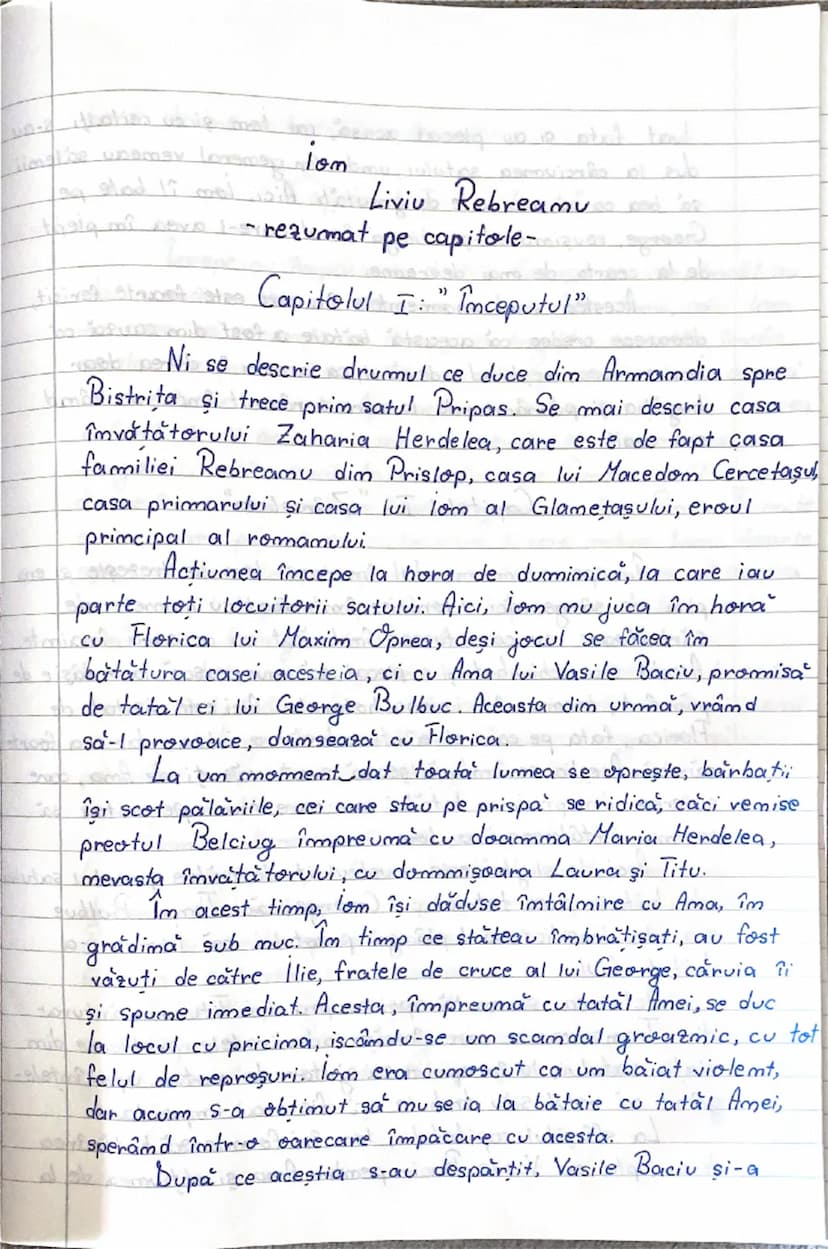 Ion
Liviu Rebreanu
-rezumat pe capitole-
Capitolul I: "Începutul"
Ni se descrie drumul ce duce din Armandia spre
Bistrița și trece prin satul Pripas. Se mai descriu casa
învățătorului Zaharia Herdelea, care este de fapt casa
familiei Rebreanu din Prislop, casa lui Macedon Cercetașul,
casa primarului și casa lui Ion al Glanetașului, eroul
principal al romanului.
Acțiunea începe la hora de duminică, la care iau
parte toți locuitorii satului. Aici, Ion nu juca în horă
cu Florica lui Maxim Oprea, deși jocul se făcea în
bătătura casei acesteia, ci cu Ana lui Vasile Baciu, promisă
de tatăl ei lui George Bulbuc. Aceasta din urmă, vrând
să-l provoace, dansează cu Florica.
La un moment dat toată lumea se oprește, bărbații
își scot pălăriile, cei care stau pe prispă se ridică, căci venise
preotul Belciug împreună cu doamna Maria Herdelea,
nevasta învățătorului, cu domnișoara Laura și Titu.
În acest timp, Ion își dăduse întâlnire cu Ana, în
grădină sub nuc. În timp ce stăteau îmbrățișați, au fost
văzuți de către Ilie, fratele de cruce al lui George, căruia îi
și spune imediat. Acesta, împreună cu tatăl Anei, se duc
la locul cu pricina, iscându-se un scandal groaznic, cu tot
felul de reproșuri. Ion era cunoscut ca un băiat violent,
dar acum s-a obținut să nu se ia la bătaie cu tatăl Anei,
sperând într-o oarecare împăcare cu acesta.
După ce aceștia s-au despărțit, Vasile Baciu și-a